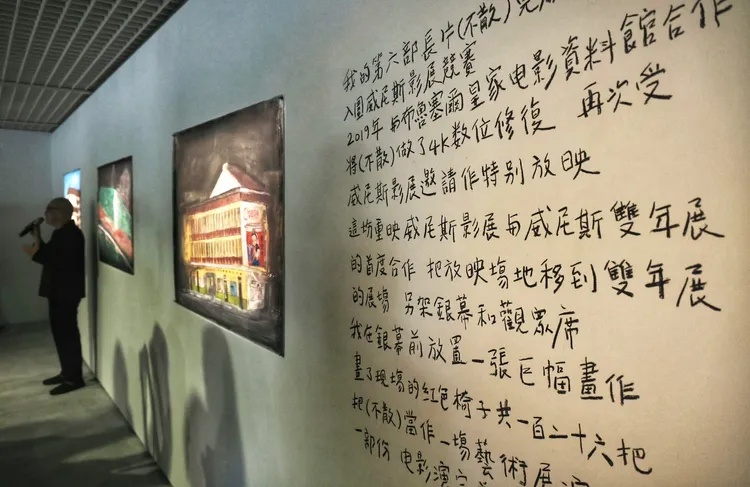 我的第六部長片(不散)完成
入圍威尼斯影展競賽
2019年 与布魯塞爾皇家电影資料館合作
將(不散)做了4K數位修復 再次受
威尼斯影展邀請作特别放映
這坊重映威尼斯影展与威尼斯雙年展
的首度合作 把放映場地移到雙年展
的展場 另架銀幕和觀眾席
我在銀幕前放置一張巨幅畫作
畫了現場的紅色椅子共一百二十六把
把(不散)當作一場藝術展演
一部份 电影演完